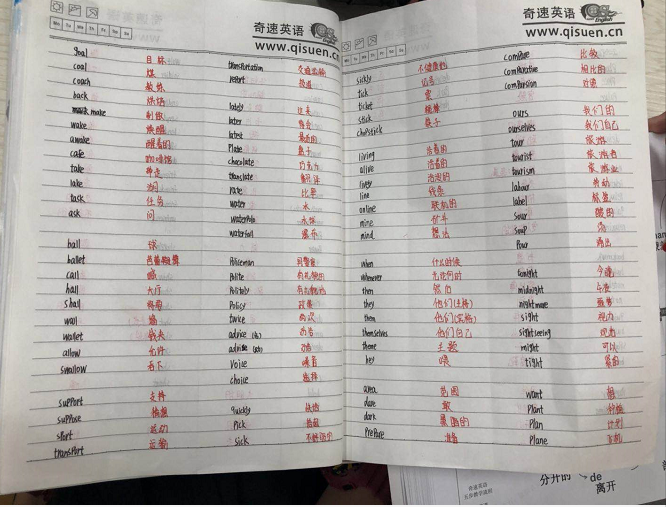 奇速英语
www.qisuen.cn
Mo Tu We Th Fr Sa Su
goal 目标 transportation 交通运输
coal 煤 report 报道
coach 教练
back 烘焙 lately
make 制做 later
wake 唤醒 latest 最近的
awake 醒着的 Plate 盘子
cafe 咖啡馆 chocolate 巧克力
take 带走 translate 翻译
lake 湖 rate 比率
task 任务 water 水
ask 问 waterPolo 水球
waterfall 瀑布
ball 球
ballet 芭蕾舞 Policeman 男警察
call 喊 Polite 有礼貌的
hall 大厅 Politely 有礼貌地
shall Policy 政策
wall 墙 twice 两次
wallet 钱夹 advice
allow 允许 advise
swallow 吞下 voice 嗓音
choice 选择
support 支持
suppose quickly 快地
sport 运动 Pick
transport 运输 sick 不舒服的
奇速英语
www.qisuen.cn
Mo Tu We Th Fr Sa Su
sickly 不健康的 compare 比较
tick comparative 相比的
ticket 票 comparsion 对照
stick
chopstick 筷子 ours 我们的
ourselves 我们自己
living 活着的 tour 旅游
alive 活着的 tourist 旅游者
livey 活泼的 tourism 旅游业
line 线条 labour 劳动
online 联机的 label 标签
mine 矿井 sour 酸的
mind 想法 soup 汤
Pour 涌出
when 什么时候
whenever 无论何时 tonight 今晚
then 然后 midnight 午夜
they 他们(主格) nightmare 噩梦
them 他们(宾格) sight 视力
themselves 他们自己 sightseeing 观光
theme 主题 might 可以
hey 嘿 tight 紧的
area 范围 want 想
dare 敢 Plant 种植
dark 黑暗的 Plan 计划
PrePare 准备 Plane 飞机
分开的 de
离开
奇速英语